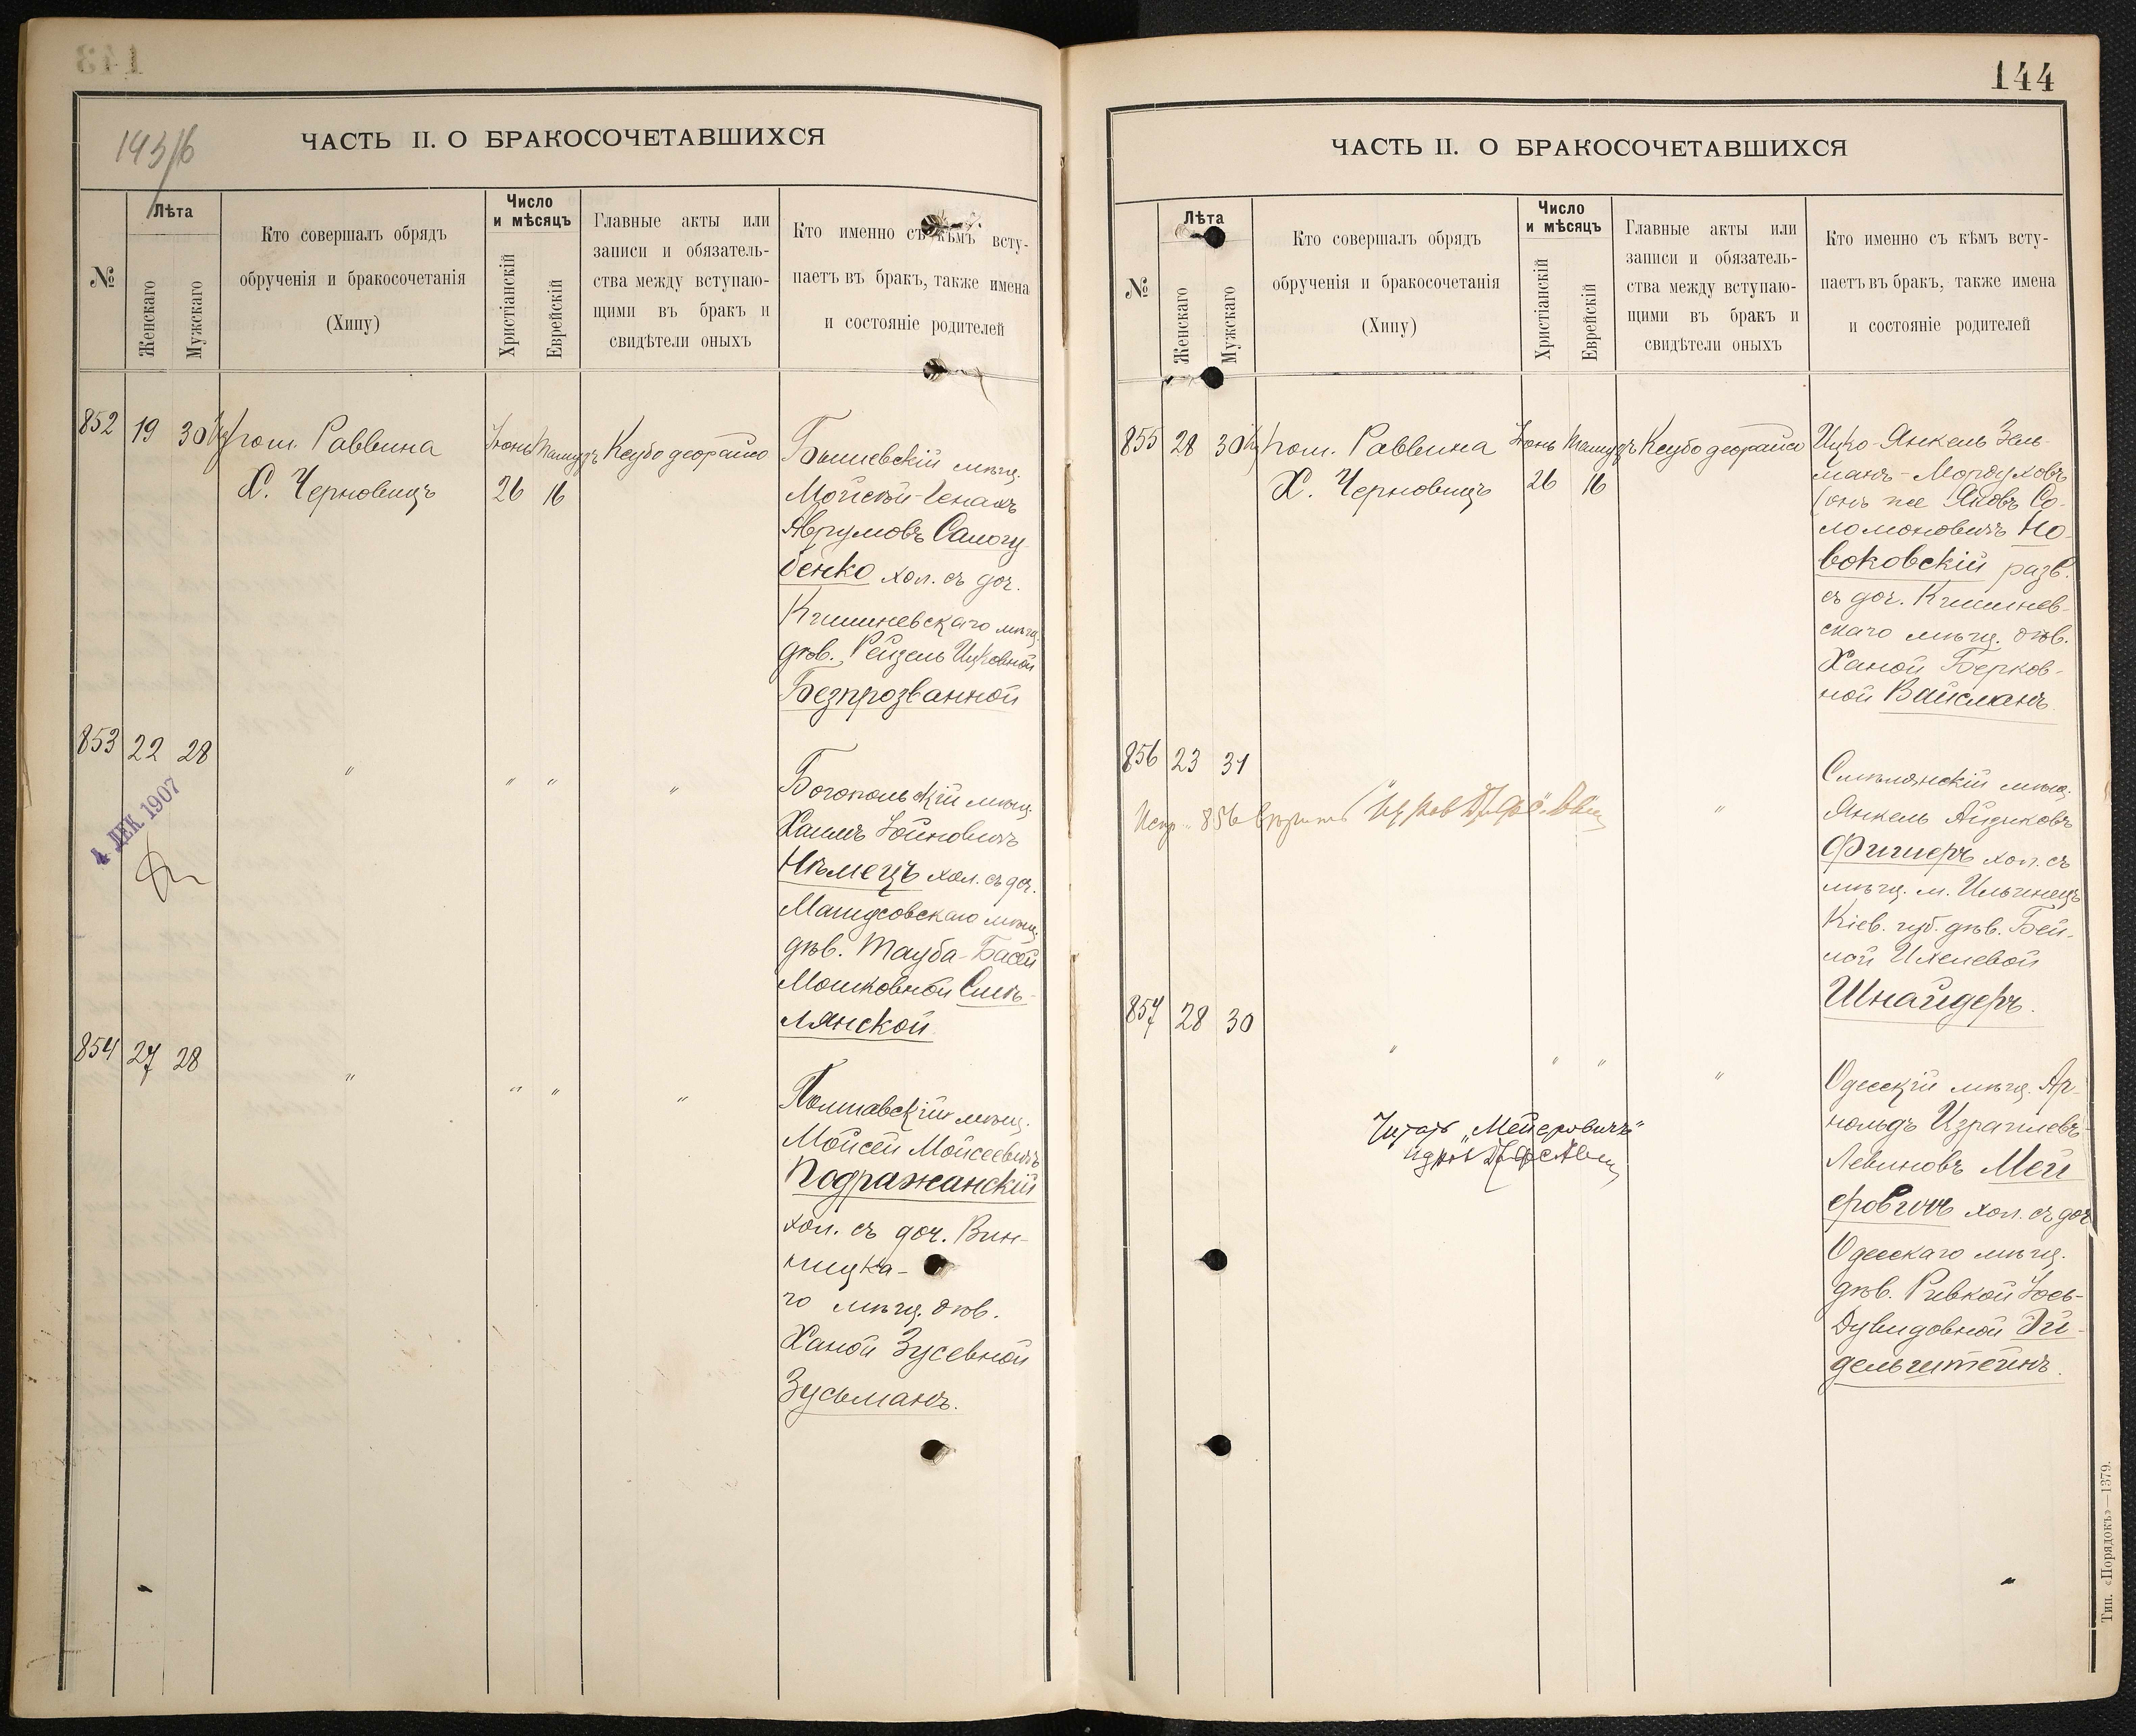 143/б
ЧАСТЬ II. О БРАКОСОЧЕТАВШИХСЯ
№
Лѣта
Женскаго
Мужскаго
Кто совершалъ обрядъ
обрученія и бракосочетанія
(Хипу)
Число
и мѣсяцъ
Христіанскій
Еврейскій
Главные акты или
записи и обязатель-
ства между вступаю-
щими въ бракъ и
свидѣтели оныхъ
Кто именно съ кѣмъ всту-
паетъ въ бракъ, также имена
и состояніе родителей
852 19 30 пом. Раввина Іюнь Тамузъ Ксубо деорайсо
Х. Черновицъ 26 16
Бышевскій мѣщ.
Мойсей-Генахъ
Аврумовъ Самогу-
бенко хол. съ доч.
Кишиневскаго мѣщ.
дѣв. Рейзель Ицковной
Безпрозванной
853 22 28 " " " "
4 ДЕК. 1907
Богопольскій мѣщ.
Хаимъ Іойновичъ
Нѣмецъ хол. съ доч.
дѣв. Тауба-Басей
Мошковной Смѣ-
лянской
854 27 28 " " " "
Полтавскій мѣщ.
Мойсей Мойсеевичъ
Подражанскій
хол. съ доч. Вин-
ницка-
го мѣщ. дѣв.
Ханой Зусевной
Зусьманъ.
144
ЧАСТЬ II. О БРАКОСОЧЕТАВШИХСЯ
№
Лѣта
Женскаго
Мужскаго
Кто совершалъ обрядъ
обрученія и бракосочетанія
(Хипу)
Число
и мѣсяцъ
Христіанскій
Еврейскій
Главные акты или
записи и обязатель-
ства между вступаю-
щими въ бракъ и
свидѣтели оныхъ
Кто именно съ кѣмъ всту-
паетъ въ бракъ, также имена
и состояніе родителей
855 28 30 пом. Раввина Іюнь Тамузъ Ксубо деорайсо
Х. Черновицъ 26 16
Ицко-Янкель Заль-
манъ-Мордуховъ
(онъ же Яковъ Со-
ломоновичъ Но-
воковскій разв.
съ доч. Кишинев-
скаго мѣщ. дѣв.
Ханой Берков-
ной Вайсманъ
856 23 31 "
Испр. 856 вѣрить
Смѣлянскій мѣщ.
Янкель Айзиковъ
Фишеръ хол. съ
мѣщ. м. Ильинецъ
Кіев. губ. дѣв. Бей-
лой Ихелевой
Шнайдеръ.
857 28 30 " " " "
Читать „Мейеровичъ"
Одесскій мѣщ. Ар-
нольдъ Израилевъ-
Левиновъ Мей
еровичъ хол. съ доч.
Одесскаго мѣщ.
дѣв. Ривкой Іось-
Дувидовной Эй-
дельштейнъ.
Тип. «Порядокъ»—1379.